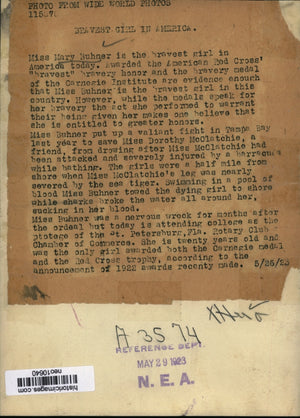 PHOTO FROM WIDE WORLD PHOTOS
115878
BRAVEST GIRL IN AMERICA.
Miss Mary Buhner is the bravest girl in
America today. Awarded the American Red Cross'
"bravest" bravery honor and the bravery medal
of the Carnegie Institute are evidence enough
that Miss Buhner is the bravest girl in this
country. However, while the medals speak for
her bravery the act she performed to warrant
their being given her makes one believe that
she is entitled to greater honors.
Miss Buhner put up a valiant fight in Tampa Bay
last year to save Miss Dorothy McClatchie, a
friend, from drowing after Miss McClatchie had
been attacked and severely injured by a barracuda
while bathing. The girls were a half mile from
shore when Miss McClatchie's leg was nearly
severed by the sea tiger. Swimming in a pool of
blood Miss Buhner towed the dying girl to shore
while sharks broke the water all around her,
sucking in her blood.
Miss Buhner was a nervous wreck for months after
the ordeal but today is attending college as the
protege of the St. Petersburg, Fla. Rotary Club
Chamber of Commerce. She is twenty years old and
was the only girl awarded both the Carnegie medal
and the Red Cross trophy, according to the
announcement of 1922 awards recently made. 5/25/23
A 3574
REFERENCE DEPT.
MAY 29 1923
N. E. A.
historicimages.com
neo10640